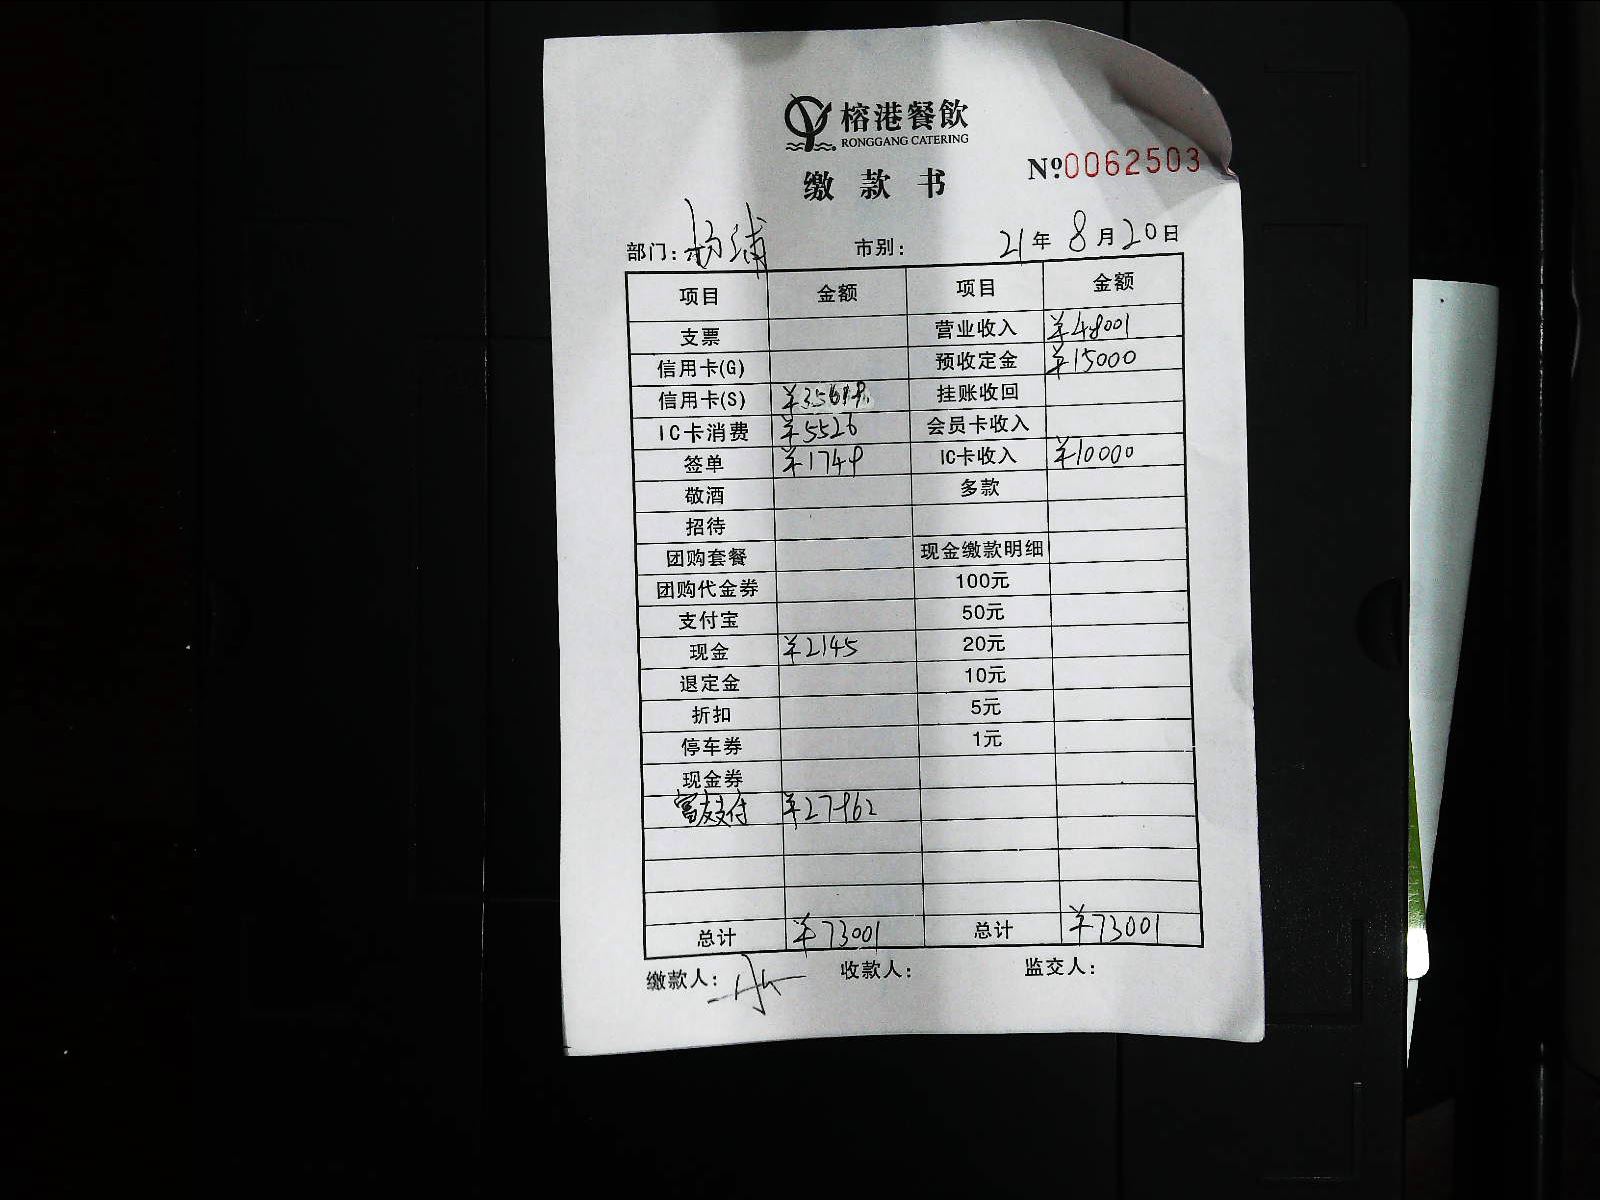 榕港餐飲
RONGGANG CATERING
缴款书
Nº0062503
部门：杨浦 市别： 21年8月20日
项目 金额 项目 金额
支票 营业收入 ¥48001
信用卡(G) 预收定金 ¥15000
信用卡(S) ¥35619 挂账收回
IC卡消费 ¥5526 会员卡收入
签单 ¥1749 IC卡收入 ¥10000
敬酒 多款
招待
团购套餐 现金缴款明细
团购代金券 100元
支付宝 50元
现金 ¥2145 20元
退定金 10元
折扣 5元
停车券 1元
现金券
富友支付 ¥27962
总计 ¥73001 总计 ¥73001
缴款人： 收款人： 监交人：